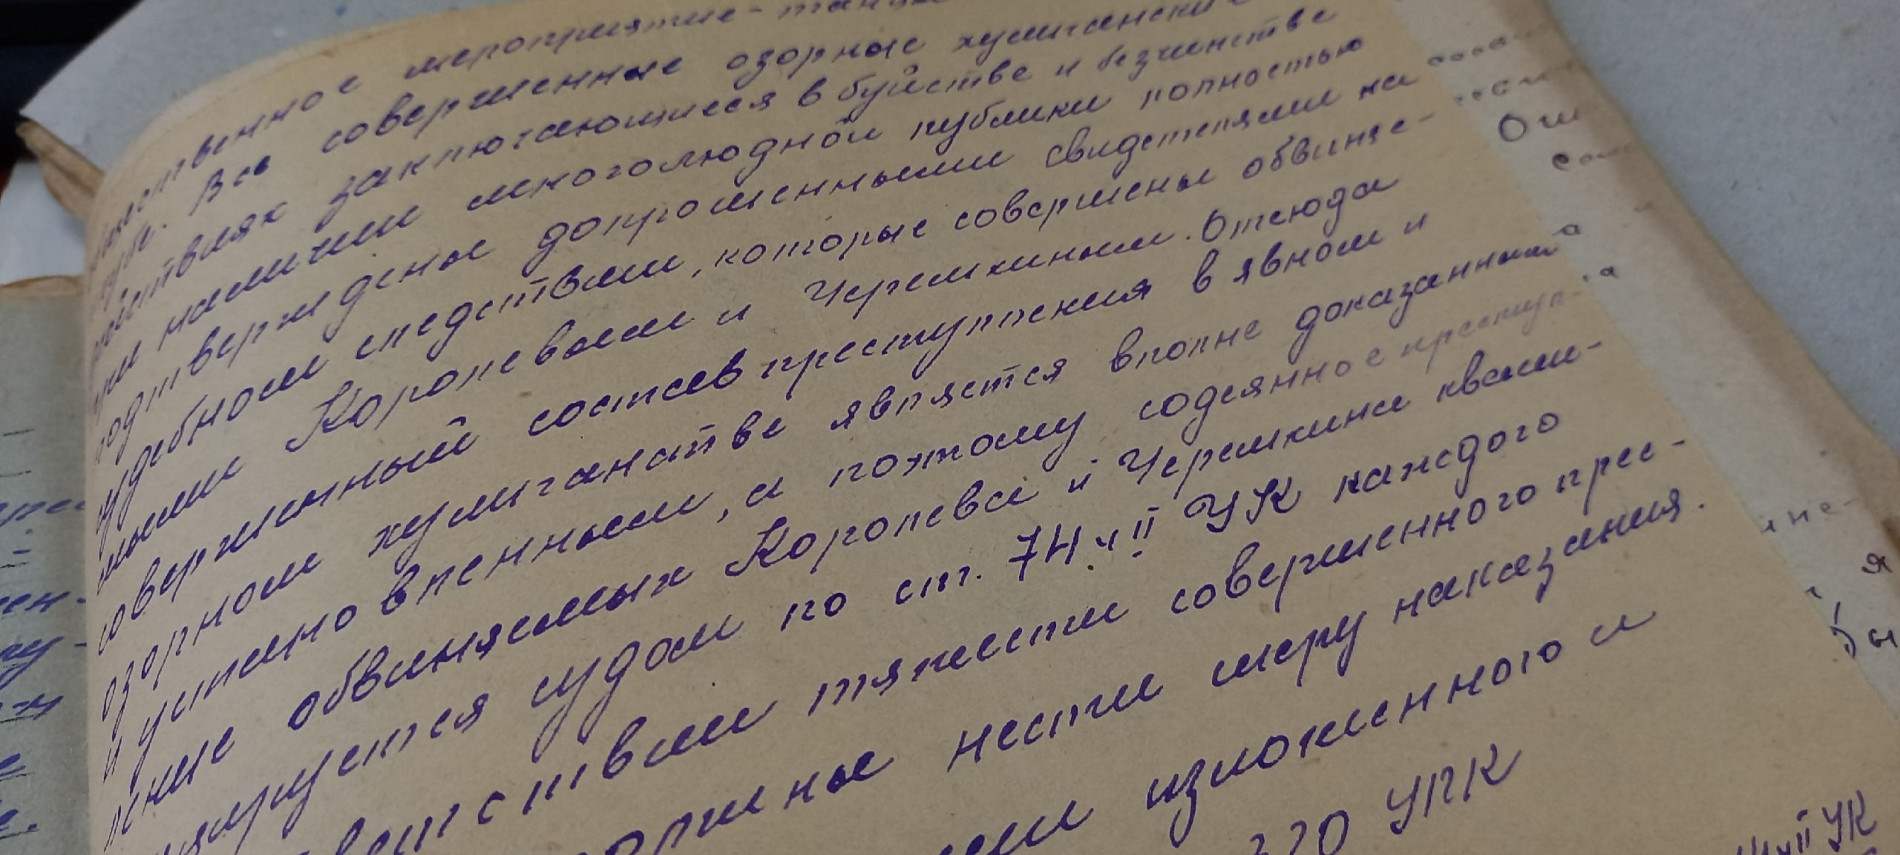 мероприятие - танцы
клубе. Все совершенные озорные хулигански
действиях заключающиеся в буйстве и безчинстве
при наличии многолюдной публики полностью
подтверждены допрошенными свидетелями на
судебном следствии, которые совершены обвиняе-
мыми Королевым и Черемкиным. Отсюда
совершенный состав преступления в явном и
озорном хулиганстве является вполне доказанным
и установленным, а поэтому содеянное преступ-
ление обвиняемых Королева и Черемкина квали-
фицируется судом по ст. 74 ч II УК каждого
тяжести совершенного прес-
должны нести меру наказания.
изложенного и
320 УПК